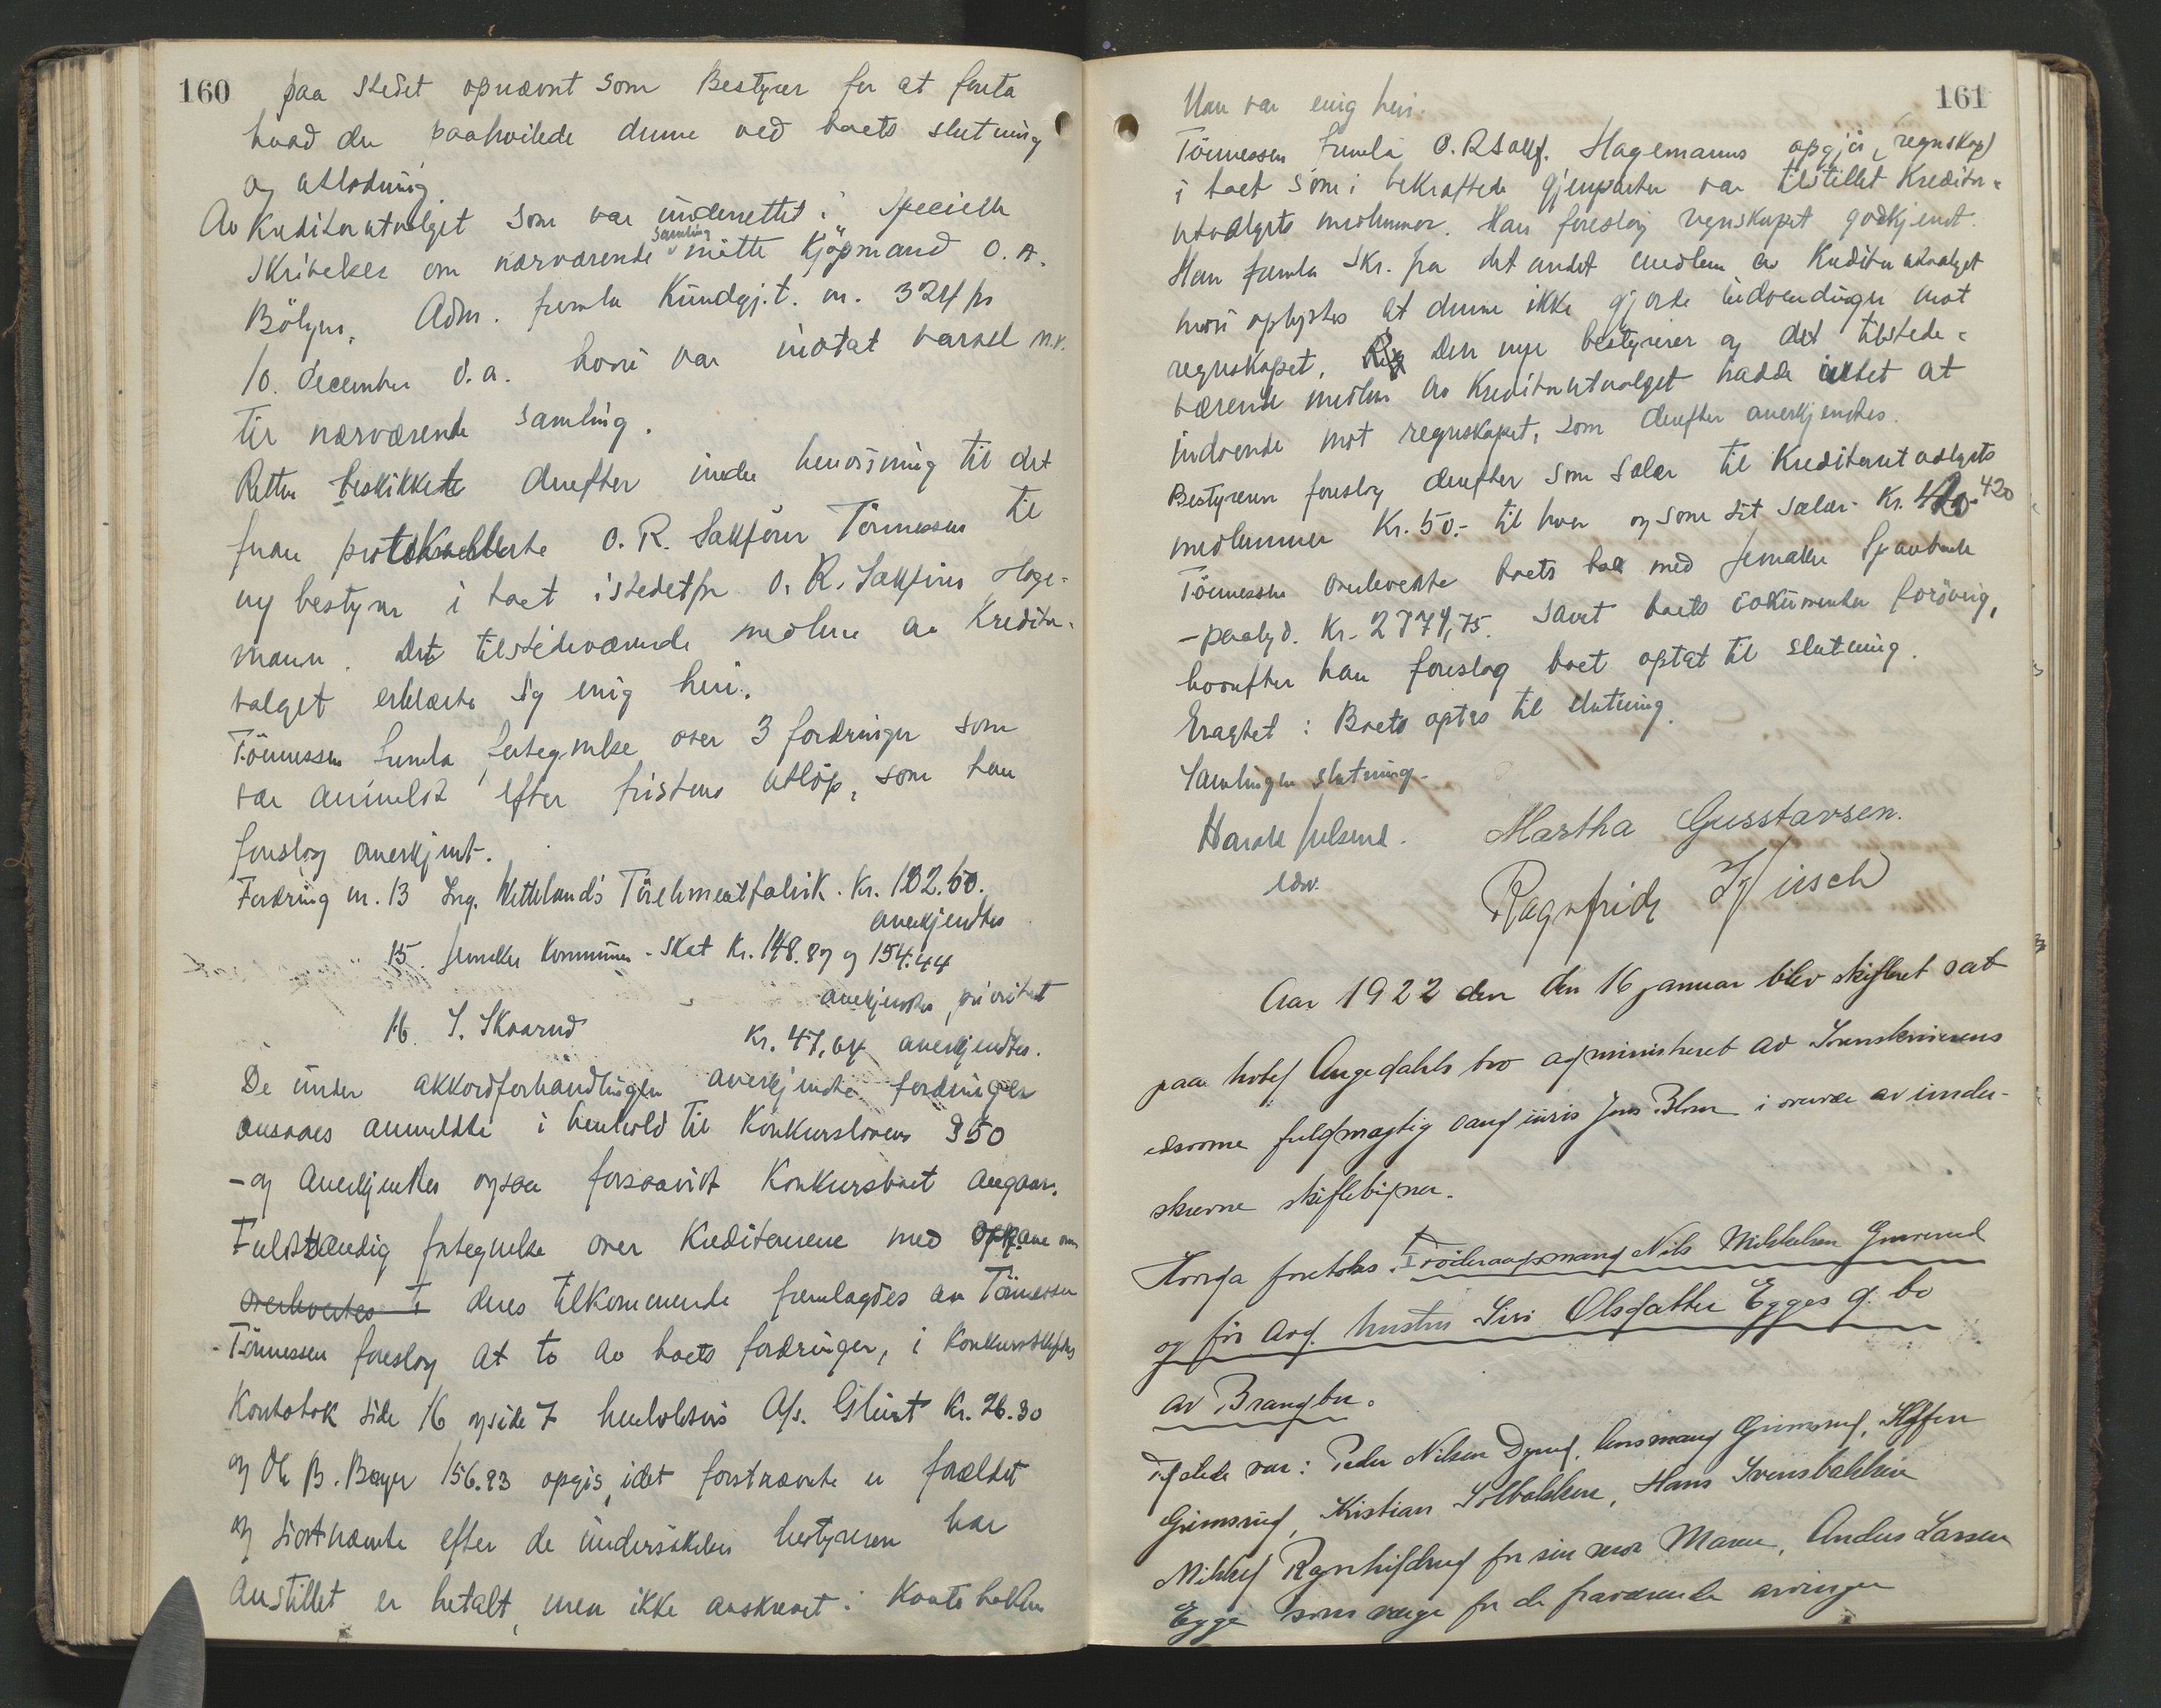 160
paa stedet opnævnt som Bestyrer for at foreta
hvad der paahvilede denne ved boets slutning
og utlodning
Av Kreditorutvalget som var underrettet i speciell
skrivelse om nærværende samling møtte Kjøpmand O. A.
Bölgen. Adm. fremla Kundgj.t. nr. 324 for
10. december d.a. hvori var indtat varsel m.v.
til nærværende samling.
Retten beskikkede derefter under henvisning til det
foran protokollerte O. R. Sakfører Tönnessen til
ny bestyrer i boet istedetfor O. R. Sakfører Hage-
mann. Det tilstedeværende medlem av Kreditor-
valget erklærte sig enig heri.
Tönnessen fremla fortegnelse over 3 fordringer som
var anmeldt efter fristens utløp, som han
foreslog anerkjent.
Fordring nr. 13 Ing. Wettelands Törelimenfabrik. Kr. 132.50.
anerkjendtes
15. Jevnaker Kommune - skat Kr. 148.87 og 154.44
anerkjendtes, prioritet
16. S. Skaarud Kr. 47,04 anerkjendtes.
De under akkordforhandlingen anerkjendte fordringer
ansaaes anmeldte i henhold til Konkurslovens § 50
- og anerkjendtes ogsaa forsaavidt Konkursboet angaar.
Fuldstændig fortegnelse over Kreditorerne med opgave over
overleveertes T deres tilkommende fremlagdes av Tönnessen
- Tönnessen foreslog at to av boets fordringer, i
Kontobok side 16 og side 7 henholdsvis A/s. Glint Kr. 26.30
og Ole B. Bøyer 156.83 opgis, idet førstnævnte er forældet
og sistnævnte efter de undersøkelser bestyreren har
anstillet er betalt, men ikke avskrevet i Kontoboken
161
Man var enig heri.
Tönnessen fremla O.R.sakf. Hagemanns opgjör (regnskap)
i boet som i bekræftede gjenparter var tilstillet Kreditor-
utvalgets medlemmer. Han foreslog regnskapet godkjent.
Han fremla skr. fra det andet medlem av Kreditorutvalget
hvori oplystes at denne ikke gjorde indvendinger mot
regnskapet. Den nye bestyrer og det tilstede-
værende medlem av Kreditorutvalget hadde intet at
indvende mot regnskapet, som derefter anerkjendtes.
Bestyreren foreslog derefter som salær til Kreditorutvalgets
medlemmer Kr. 50.- til hver og som sit salær Kr. 420
Tönnessen overleverte boets bok med Jevnaker Sparebank
- paalyd. Kr. 2774,75. samt boets dokumenter forövrig,
hvorefter han foreslog boet optat til slutning.
Eragtet: Boet optas til slutning.
Samlingen slutning.
Martha Gusstavsen.
Ragnfrid Kirsch
Aar 1922 den den 16 januar blev skifteret sat
paa hotel Augedahls bro administreret av Sorenskriverens
edsvorne fuldmægtig cand. juris Jens Blom i overvær av under-
skrevne skiftevidner.
Hvorda foretokes: Föderaadsmand Nils Mikkelsen
og før avd. hustru Siri Olsdatter Egges d. bo
av Brandbu.
Tilstede var: Peder Nilsen Dynd, lensmand Grimsrud, Steffen
Grimsrud, Kristian Solbakken, Hans Svensbakken
Mikkel Ragnhildrud for sin mor Maren, Anders Larsen
Egge som verge for de fraværende arvinger